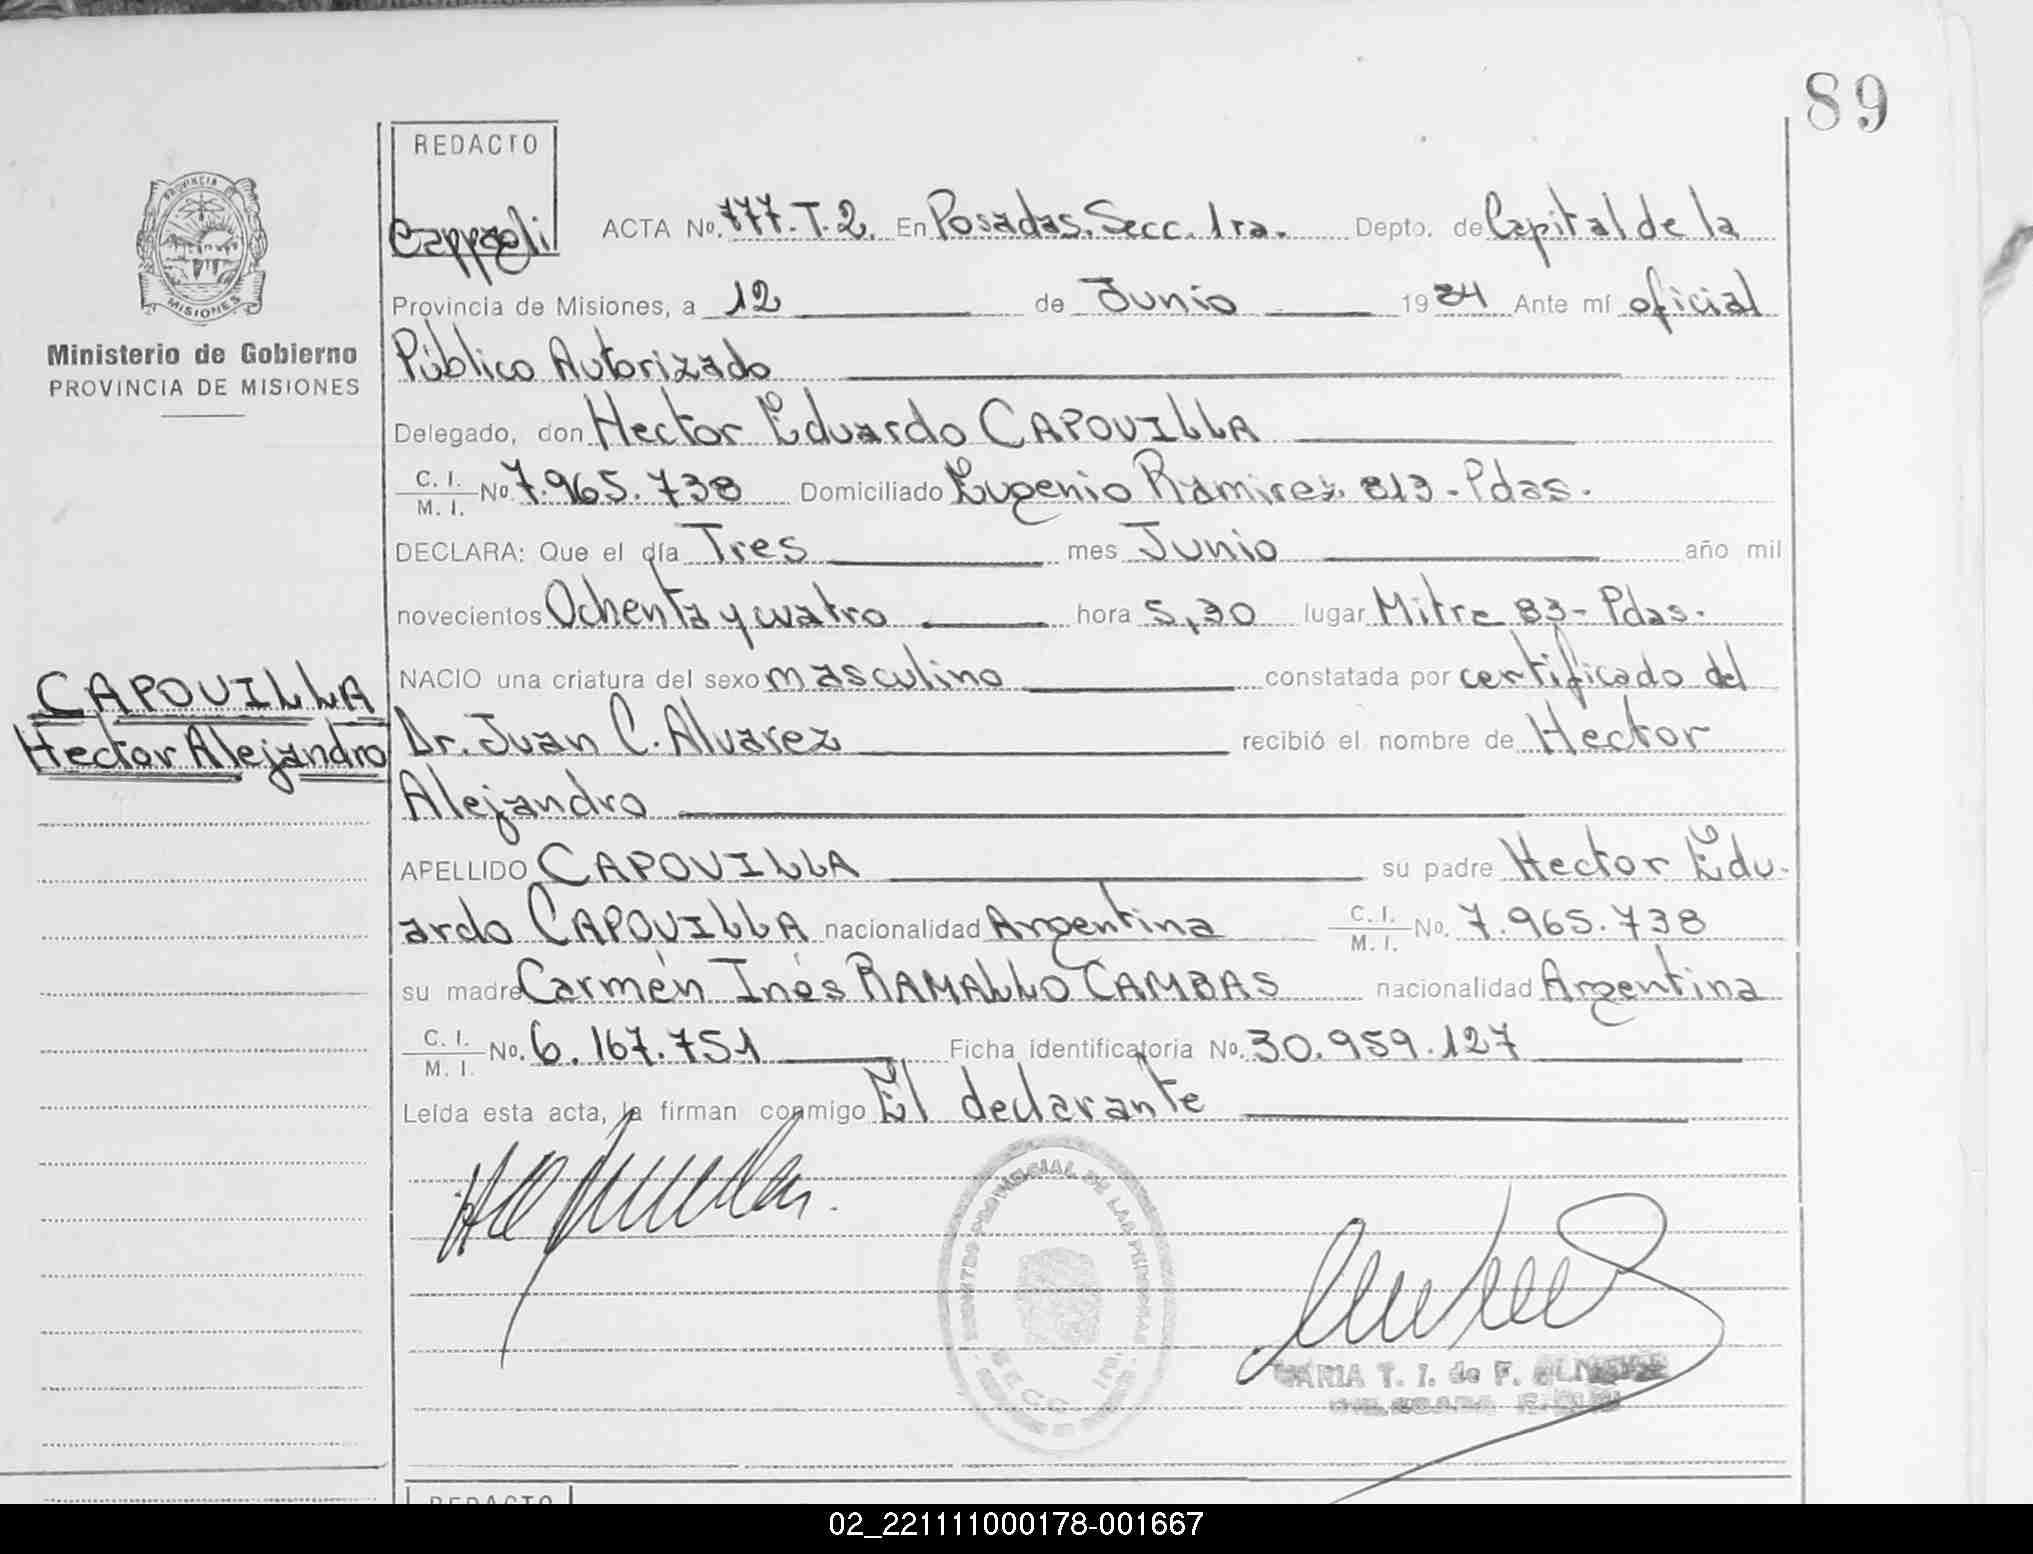 89
REDACTO
PROVINCIA
MISIONES
ACTA No. 777.T.2. En Posadas. Secc. 1ra. Depto. de Capital de la
Provincia de Misiones, a 12 de Junio 1984 Ante mí oficial
Ministerio de Gobierno
PROVINCIA DE MISIONES
Público Autorizado
Delegado, don Hector Eduardo CAPOUILLA
C. I.
M. I. No. 7.965.738 Domiciliado Eugenio Ramirez 813 - Pdas.
DECLARA: Que el día Tres mes Junio año mil
novecientos Ochenta y cuatro hora 5,30 lugar Mitre 83 - Pdas.
NACIO una criatura del sexo masculino constatada por certificado del
CAPOUILLA
Hector Alejandro
Dr. Juan C. Alvarez recibió el nombre de Hector
Alejandro
APELLIDO CAPOUILLA su padre Hector Edu-
ardo CAPOUILLA nacionalidad Argentina C. I.
M. I. No. 7.965.738
su madre Carmén Inés RAMALLO CAMBAS nacionalidad Argentina
C. I.
M. I. No. 6.167.751 Ficha identificatoria No. 30.959.127
Leída esta acta, la firman conmigo El declarante
PROVINCIAL DE LAS PERSONAS
SECC. 1ra.
MARIA T. I. de F.
REDACTO
02_221111000178-001667